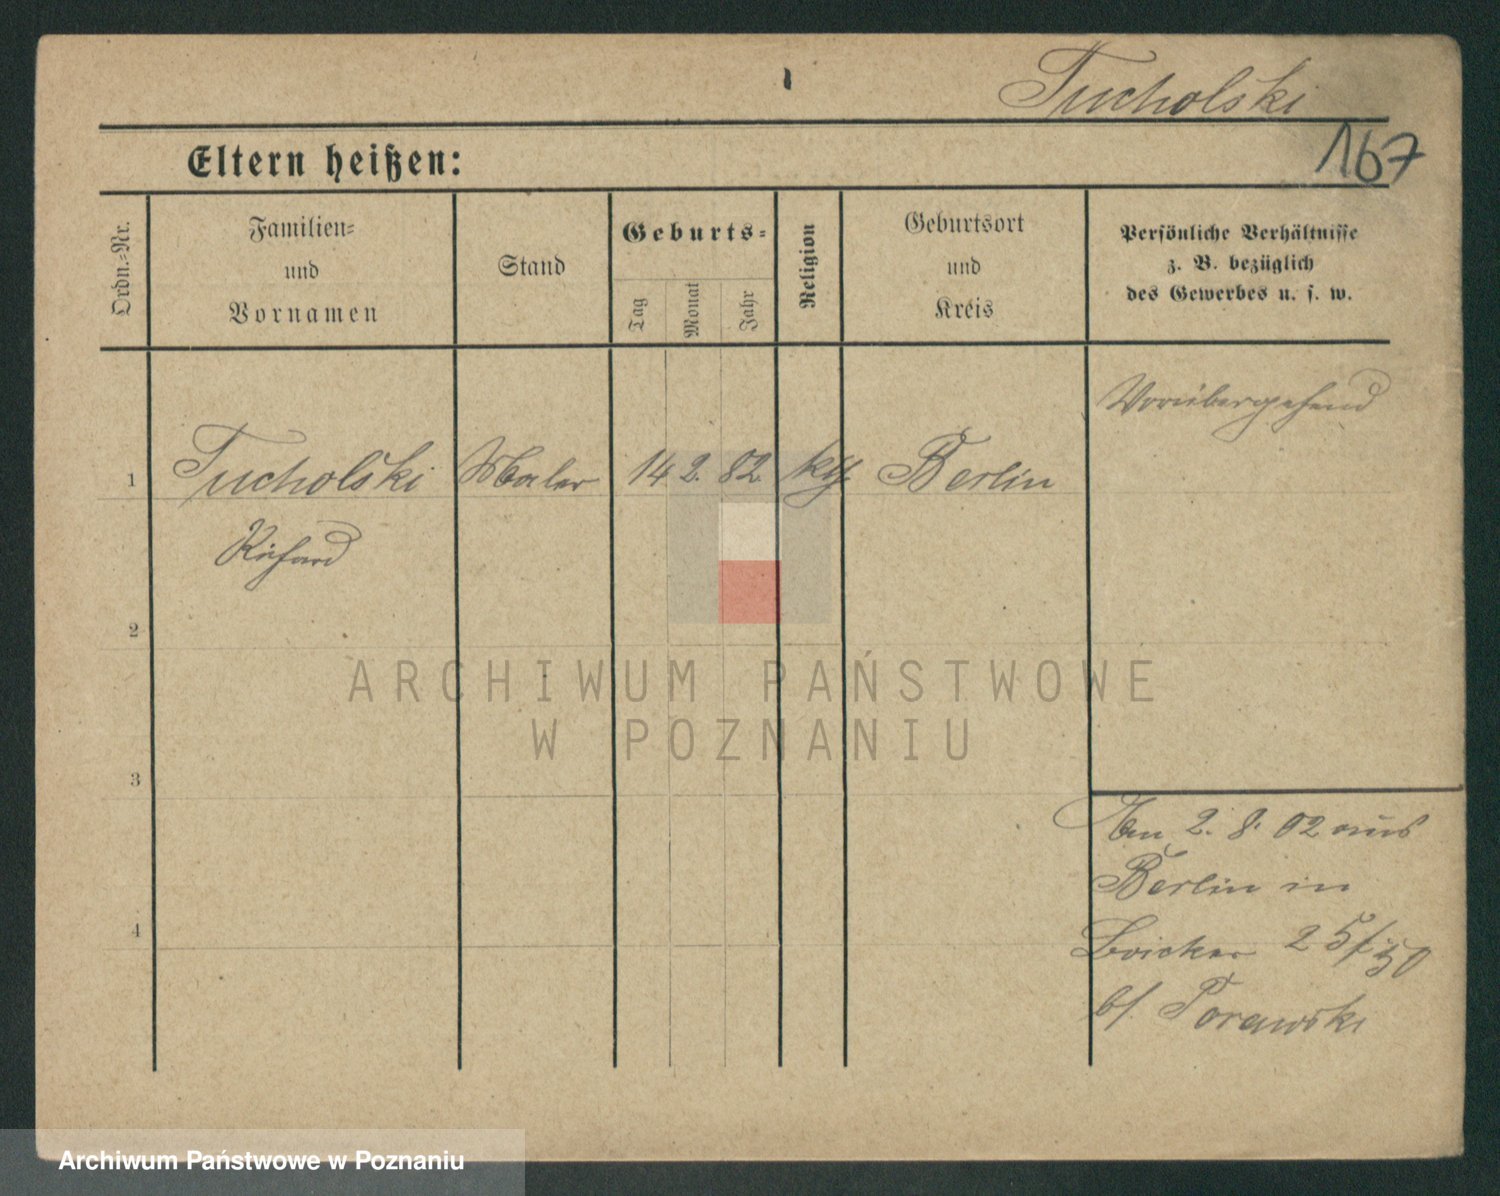 Tucholski
167
Eltern heißen:
Ordn.=Nr.
Familien=
und
Vornamen
Stand
Geburts=
Tag
Monat
Jahr
Religion
Geburtsort
und
Kreis
Persönliche Verhältnisse
z. B. bezüglich
des Gewerbes u. s. w.
Vorübergehend
1 Tucholski Maler 14 2. 82. kth Berlin
Richard
2
3
4
Am 2. 8. 02 aus
Berlin in
25/30
b/. Porawski
ARCHIWUM PAŃSTWOWE
W POZNANIU
Archiwum Państwowe w Poznaniu